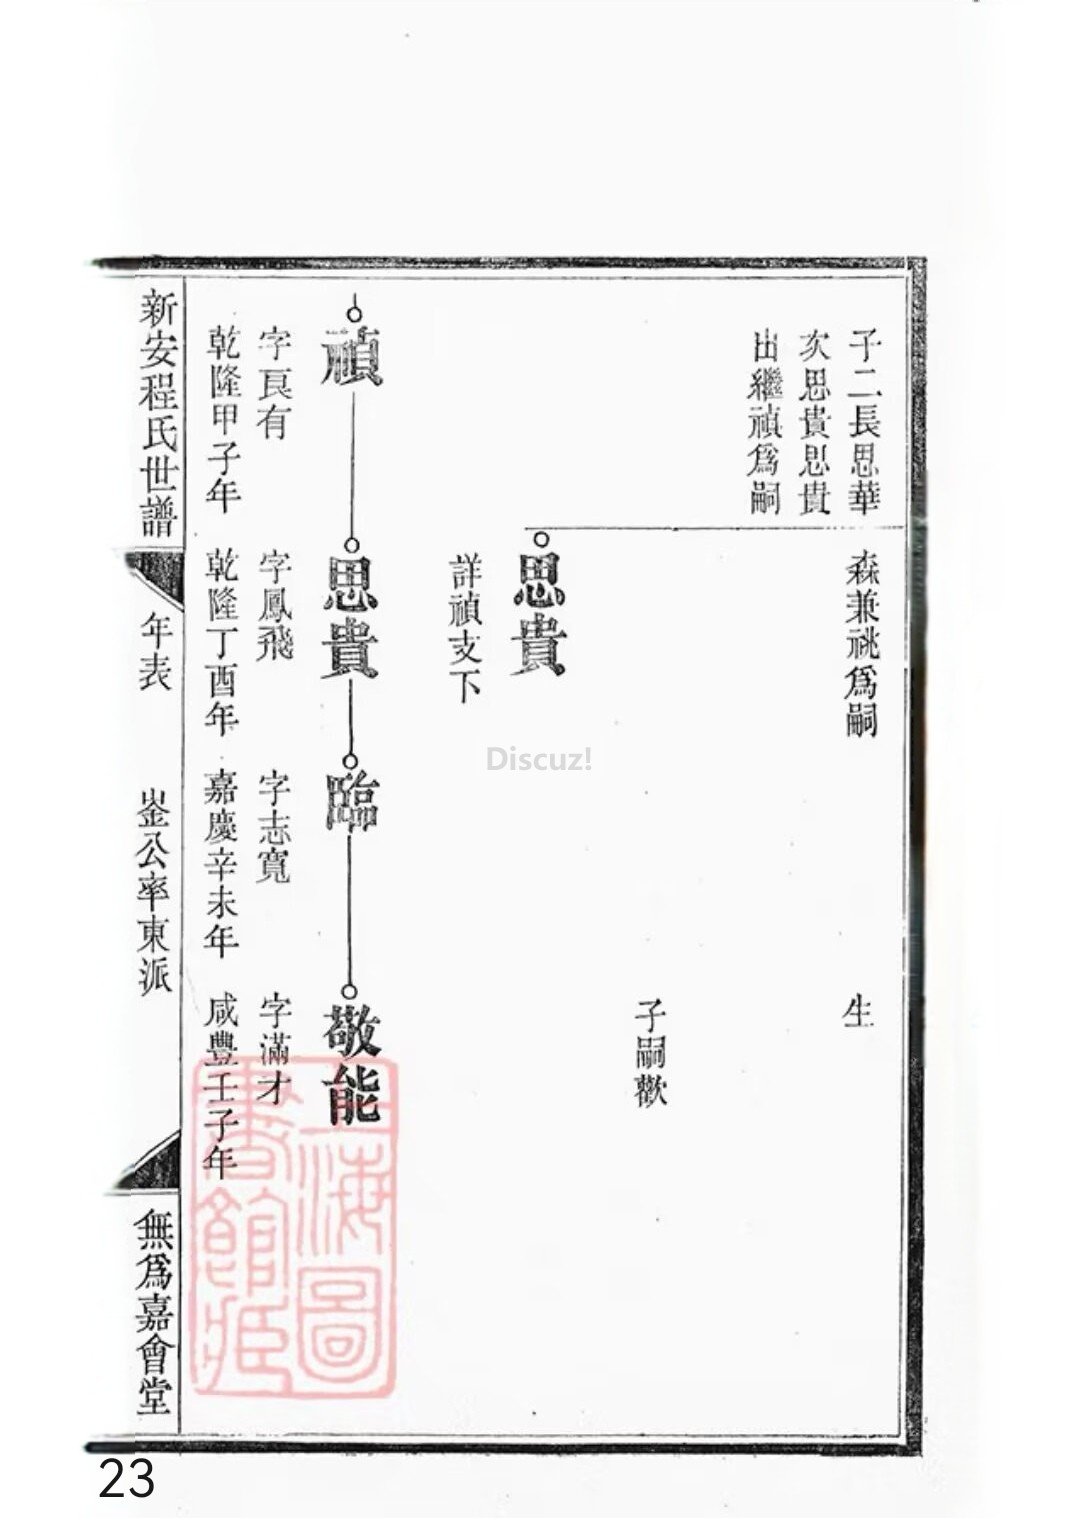 子二長思華
次思貴思貴
出繼禎爲嗣
森兼祧爲嗣
生
子嗣歡
思貴
詳禎支下
禎
字良有
乾隆甲子年
思貴
字鳳飛
乾隆丁酉年
臨
字志寬
嘉慶辛未年
敬能
字滿才
咸豐壬子年
新安程氏世譜
年表
崟公率東派
無爲嘉會堂
上海圖
書館藏
Discuz!
23